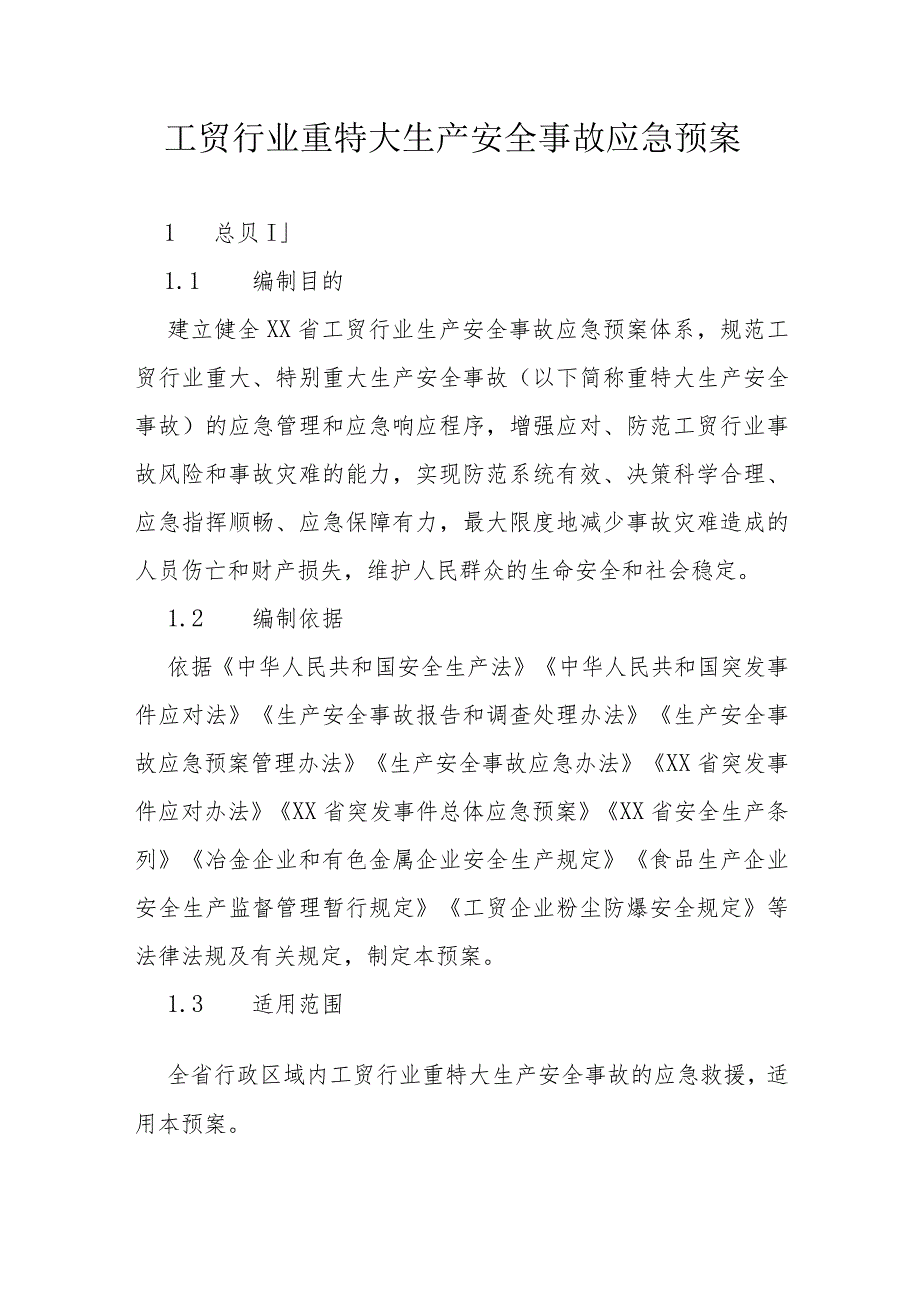 工贸行业重特大生产安全事故应急预案
1 总贝I」
1.1 编制目的
建立健全XX省工贸行业生产安全事故应急预案体系，规范工
贸行业重大、特别重大生产安全事故（以下简称重特大生产安全
事故）的应急管理和应急响应程序，增强应对、防范工贸行业事
故风险和事故灾难的能力，实现防范系统有效、决策科学合理、
应急指挥顺畅、应急保障有力，最大限度地减少事故灾难造成的
人员伤亡和财产损失，维护人民群众的生命安全和社会稳定。
1.2 编制依据
依据《中华人民共和国安全生产法》《中华人民共和国突发事
件应对法》《生产安全事故报告和调查处理办法》《生产安全事
故应急预案管理办法》《生产安全事故应急办法》《XX省突发事
件应对办法》《XX省突发事件总体应急预案》《XX省安全生产条
列》《冶金企业和有色金属企业安全生产规定》《食品生产企业
安全生产监督管理暂行规定》《工贸企业粉尘防爆安全规定》等
法律法规及有关规定，制定本预案。
1.3 适用范围
全省行政区域内工贸行业重特大生产安全事故的应急救援，适
用本预案。